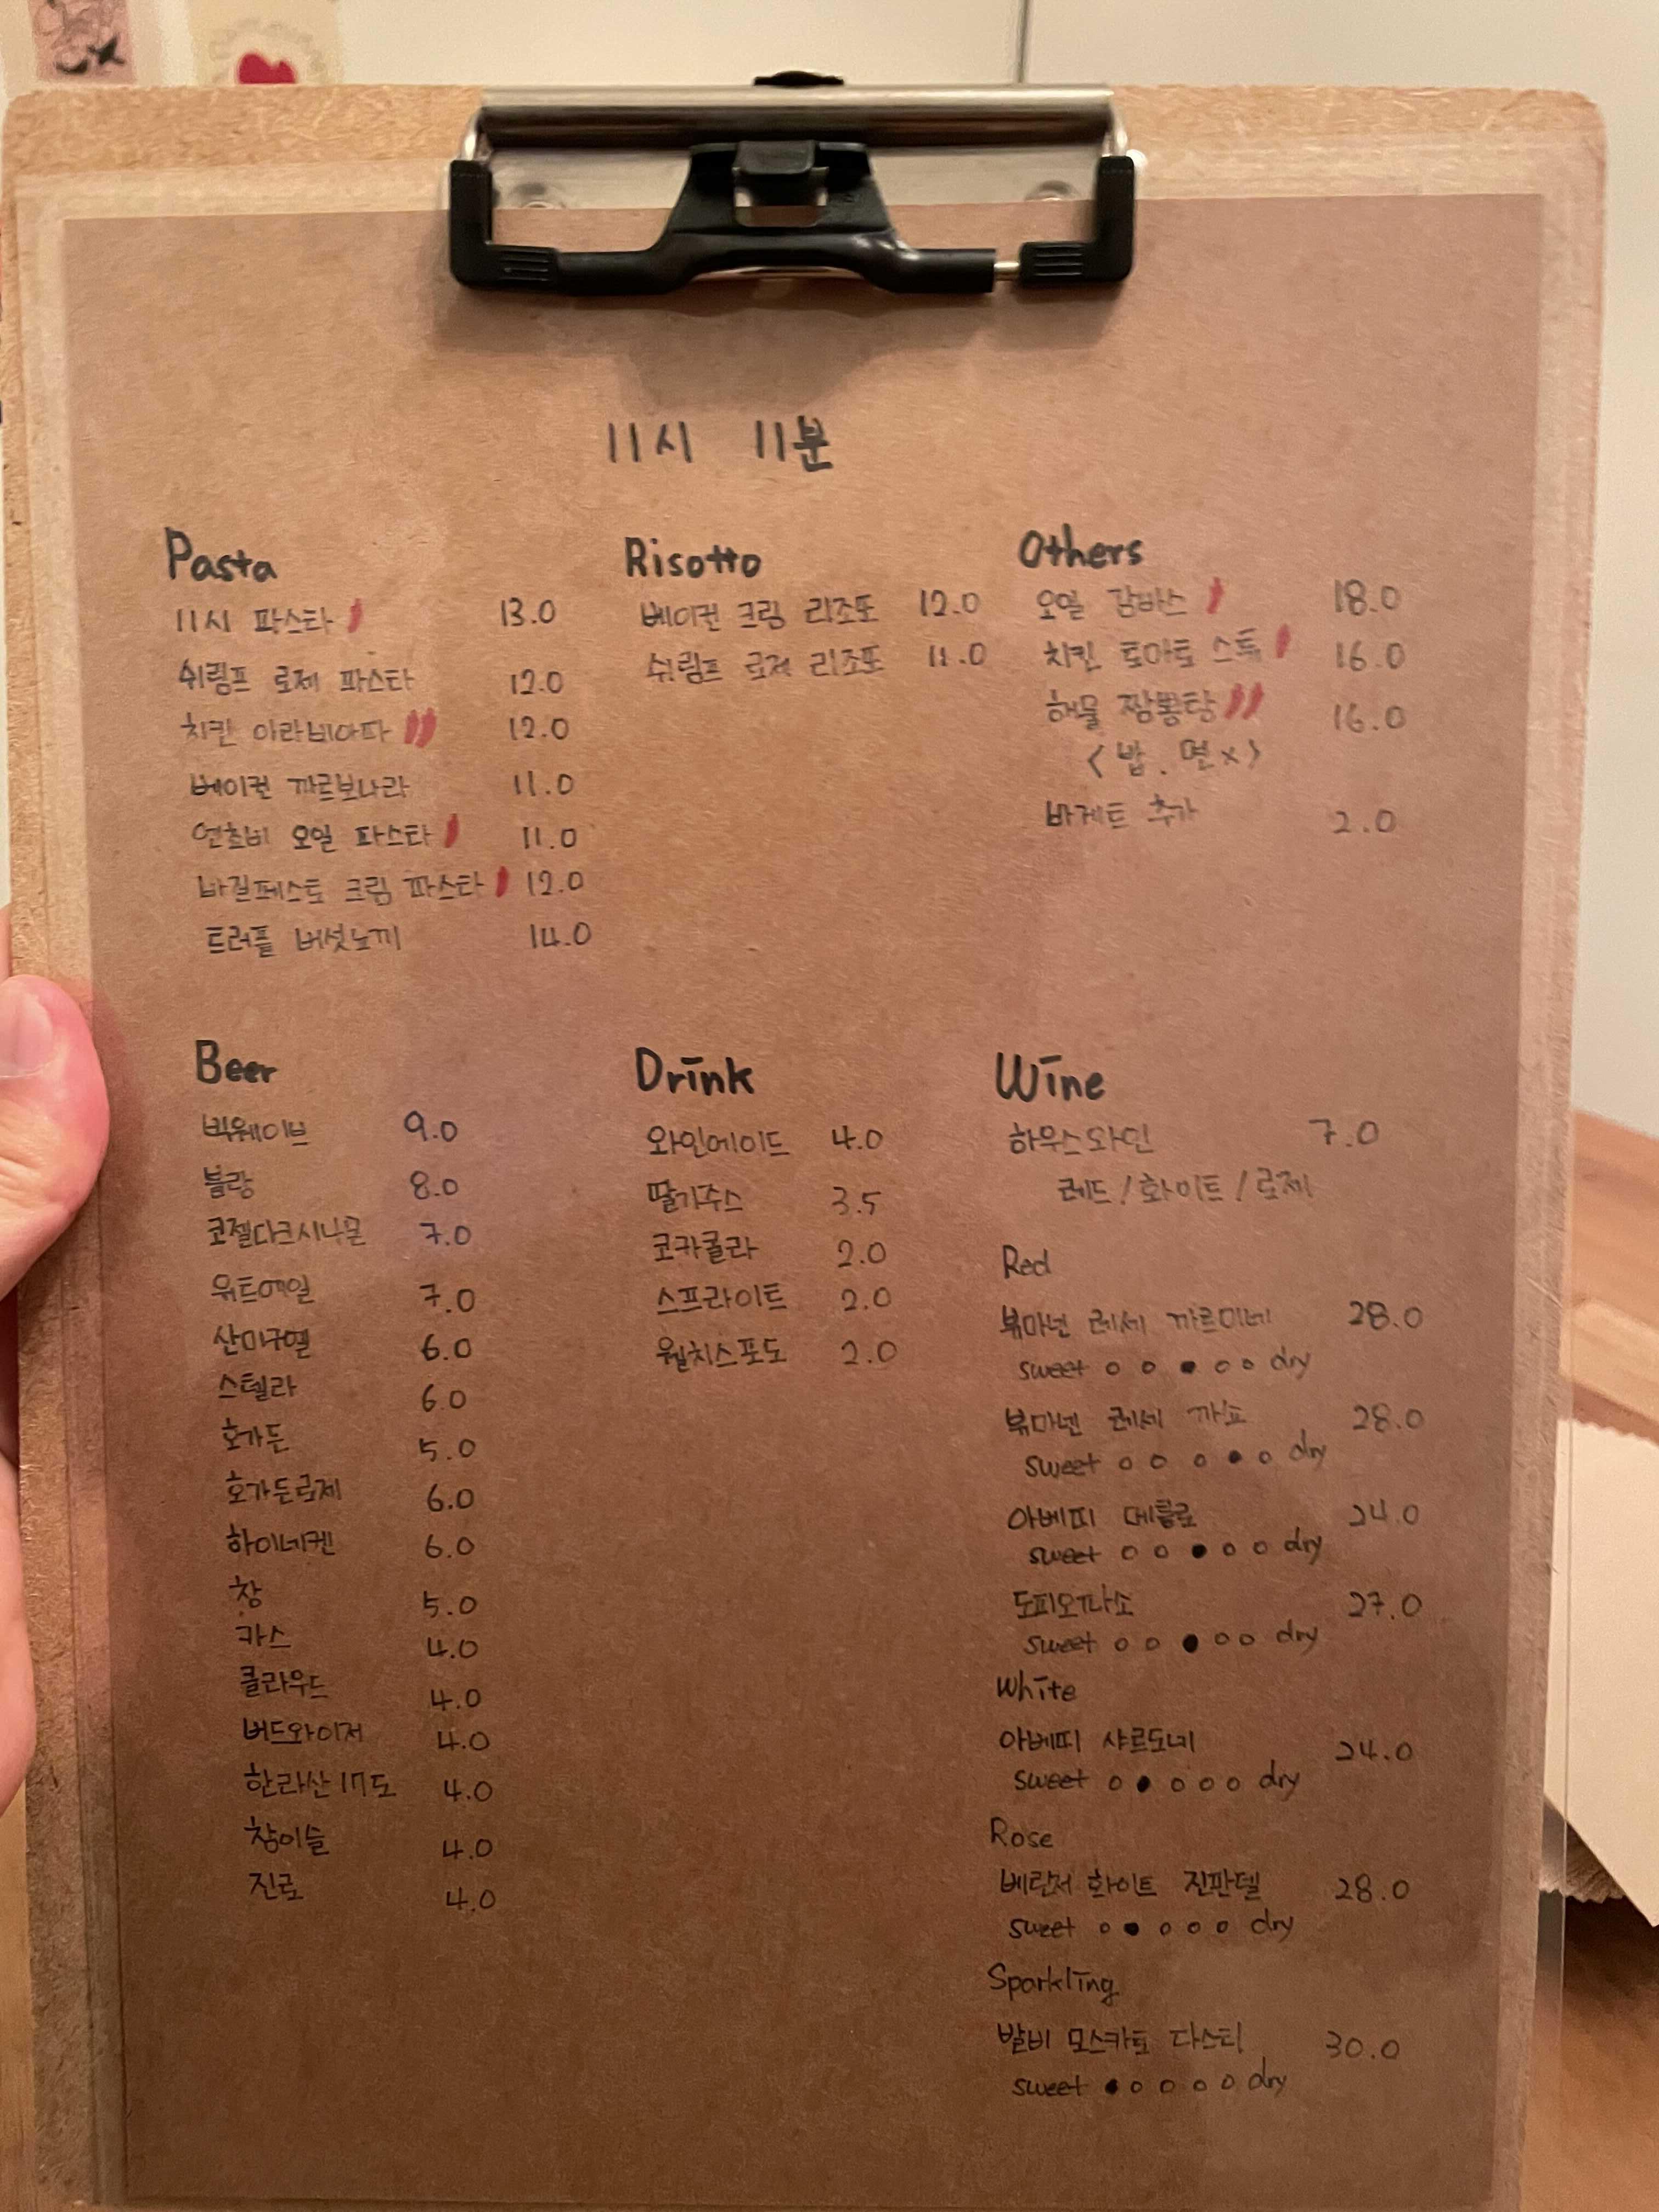 11시 11분
Pasta
11시 파스타 13.0
쉬림프 로제 파스타 12.0
치킨 아라비아따 12.0
베이컨 까르보나라 11.0
엔초비 오일 파스타 11.0
바질페스토 크림 파스타 12.0
트러플 버섯뇨끼 14.0
Risotto
베이컨 크림 리조또 12.0
쉬림프 로제 리조또 11.0
Others
오일 감바스 18.0
치킨 토마토 스튜 16.0
해물 짬뽕탕 16.0
<밥, 면 x>
바게트 추가 2.0
Beer
빅웨이브 9.0
블랑 8.0
코젤다크시나몬 7.0
위트에일 7.0
산미구엘 6.0
스텔라 6.0
호가든 5.0
호가든로제 6.0
하이네켄 6.0
창 5.0
카스 4.0
클라우드 4.0
버드와이저 4.0
한라산 17도 4.0
참이슬 4.0
진로 4.0
Drink
와인에이드 4.0
딸기주스 3.5
코카콜라 2.0
스프라이트 2.0
웰치스포도 2.0
Wine
하우스와인 7.0
레드 / 화이트 / 로제
Red
볶마넨 레세 까르미네 28.0
sweet ○ ○ ● ○ ○ dry
볶마넨 레세 까쇼 28.0
sweet ○ ○ ○ ● ○ dry
아베띠 메를로 24.0
sweet ○ ○ ● ○ ○ dry
도피오파소 27.0
sweet ○ ○ ● ○ ○ dry
White
아베띠 샤르도네 24.0
sweet ○ ● ○ ○ ○ dry
Rose
베린저 화이트 진판델 28.0
sweet ○ ● ○ ○ ○ dry
Sparkling
발비 모스카토 다스티 30.0
sweet ● ○ ○ ○ ○ dry